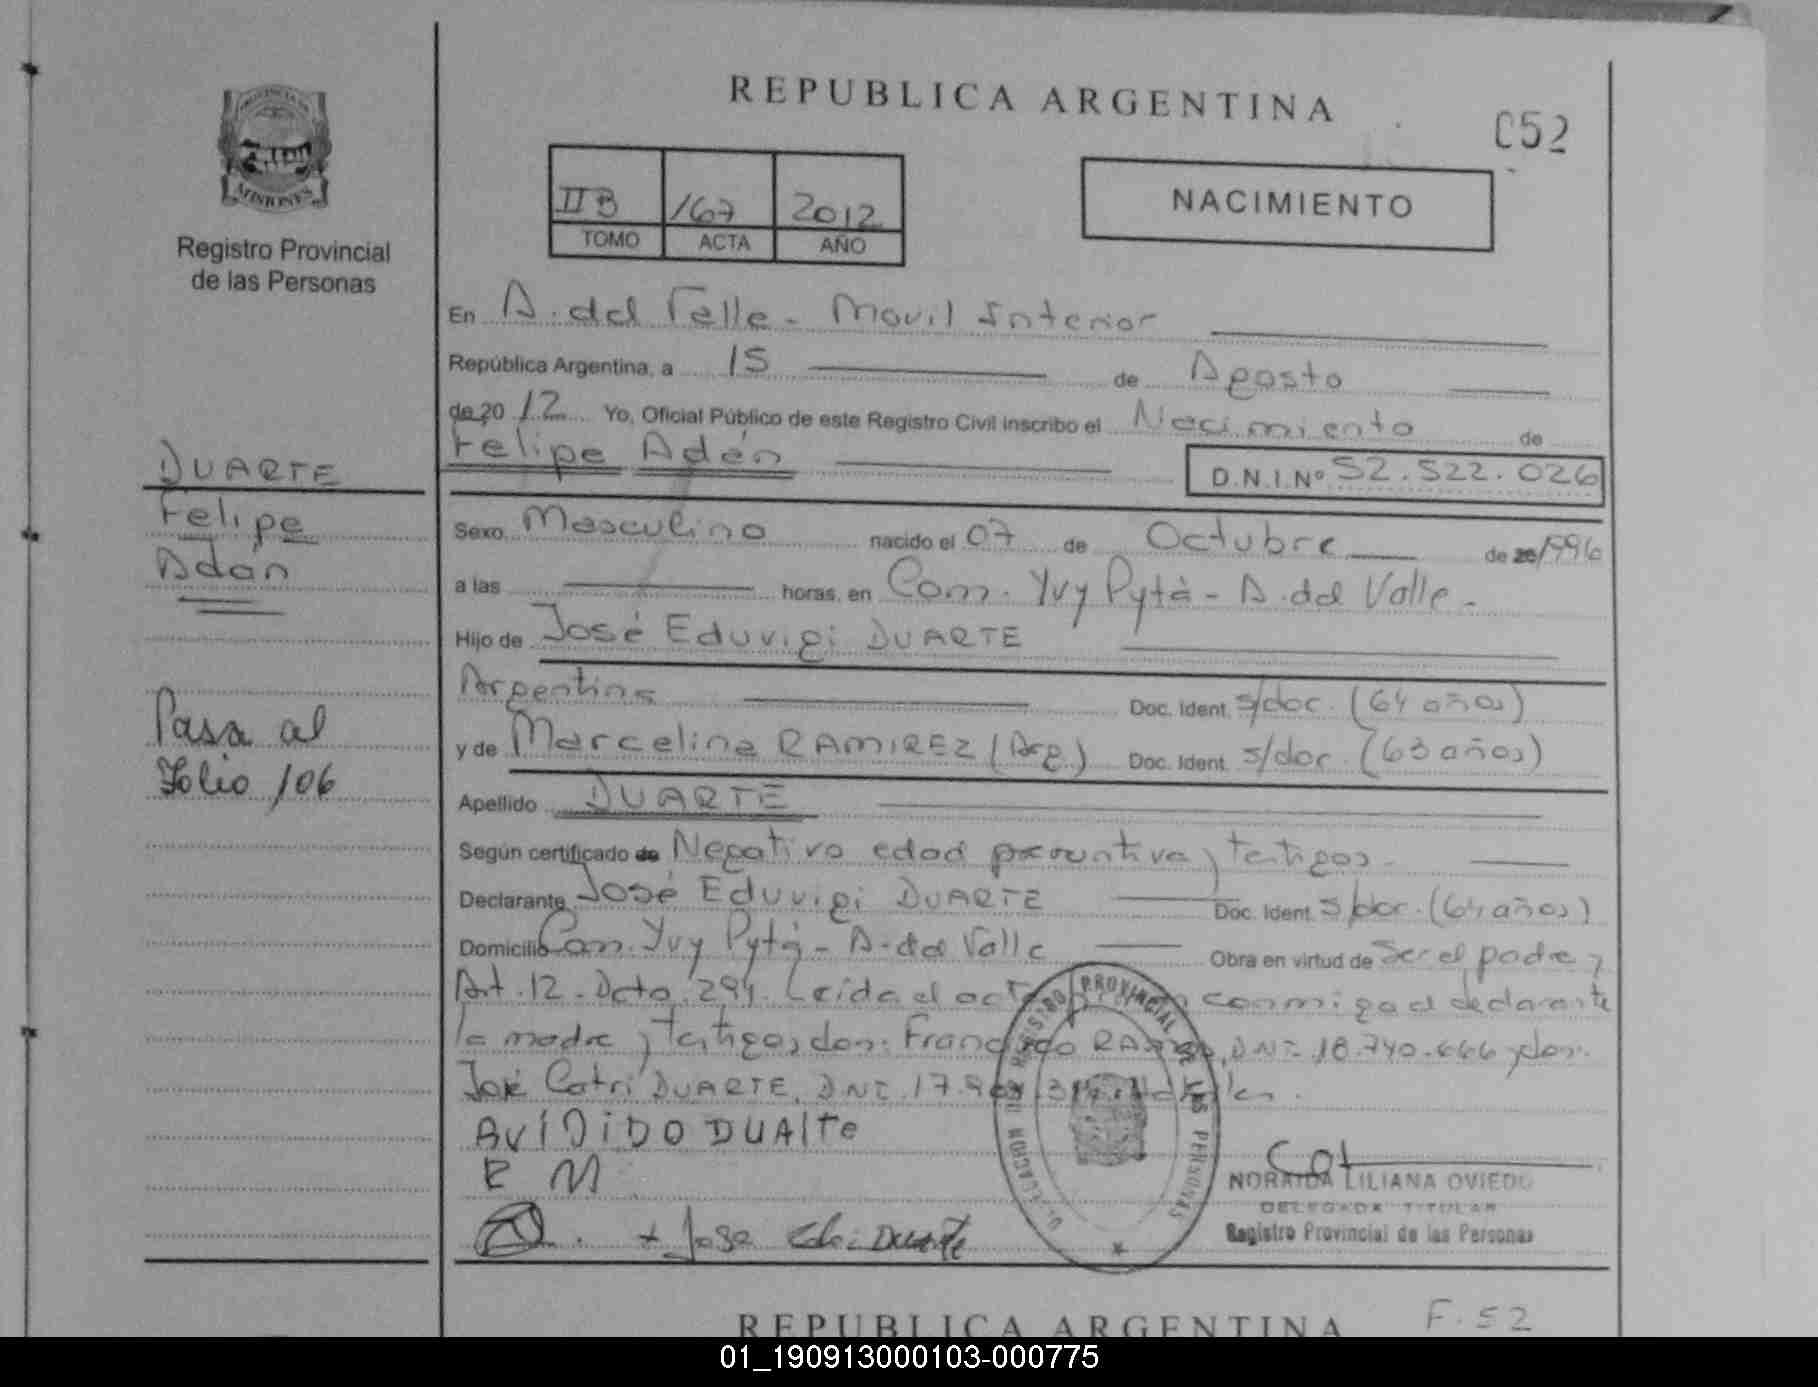 REPUBLICA ARGENTINA
C52
IIB 167 2012
TOMO ACTA AÑO
NACIMIENTO
PROVINCIA DE
MISIONES
Registro Provincial
de las Personas
En A. del Valle - Movil Interior
República Argentina, a 15 de Agosto
de 20 12 Yo, Oficial Público de este Registro Civil inscribo el Nacimiento de
Felipe Adán D.N.I.Nº 52.522.026
DUARTE
Felipe
Adán
Sexo Masculino nacido el 07 de Octubre de 1996
a las horas, en Com. Yvy Pytá - A. del Valle -
Hijo de José Eduvigi DUARTE
Argentina Doc. Ident. s/doc. (64 años)
y de Marcelina RAMIREZ (Arg.) Doc. Ident. s/doc. (63 años)
Pasa al
Folio 106
Apellido DUARTE
Según certificado de Negativo edad presuntiva y testigos.
Declarante José Eduvigi DUARTE Doc. Ident. s/doc. (64 años)
Domicilio Com. Yvy Pytá - A. del Valle Obra en virtud de Ser el padre y
Art. 12 - Dcto. 294. Leída el acta conmigo el declarante
la madre y testigos, don: Francisco DNI. 18.740.666 y don:
José Catri DUARTE, DNI. 17.
AVÍDIDO DUAlTe
E M
+ Jose Duarte
REGISTRO PROVINCIAL DE LAS PERSONAS
NORAIDA LILIANA OVIEDO
DELEGADA TITULAR
Registro Provincial de las Personas
REPUBLICA ARGENTINA
F. 52
01_190913000103-000775